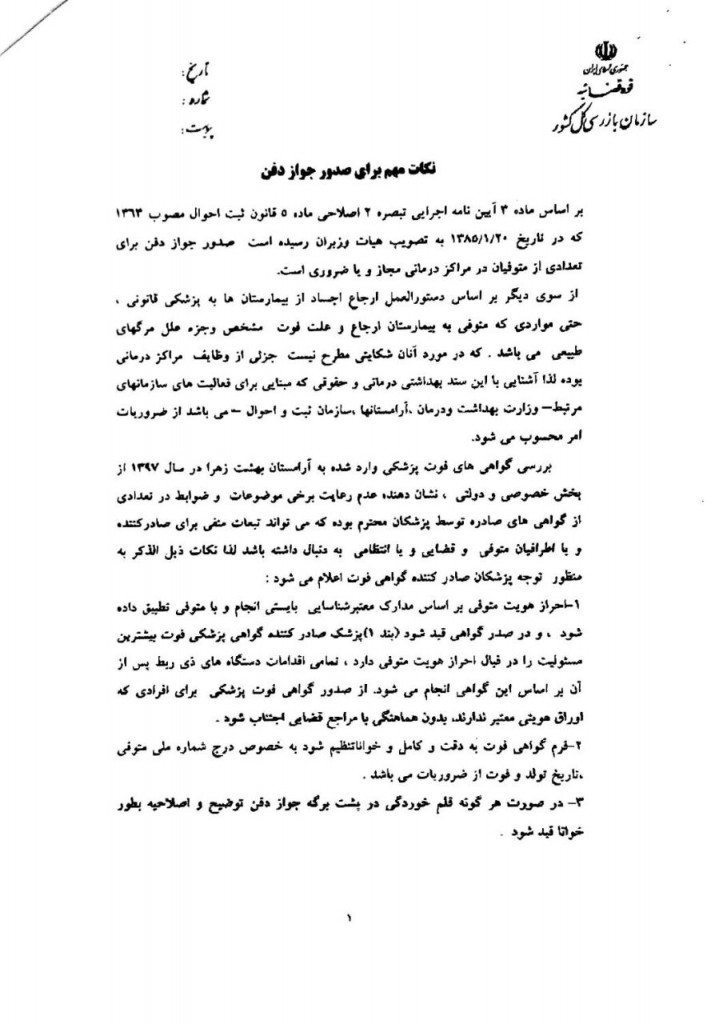 جمهوری اسلامی ایران
قوه قضائیه
سازمان بازرسی کل کشور
تاریخ:
شماره:
پیوست:
نکات مهم برای صدور جواز دفن
بر اساس ماده ۳ آیین نامه اجرایی تبصره ۲ اصلاحی ماده ۵ قانون ثبت احوال مصوب ۱۳۶۳
که در تاریخ ۱۳۸۵/۱/۲۰ به تصویب هیات وزیران رسیده است صدور جواز دفن برای
تعدادی از متوفیان در مراکز درمانی مجاز و یا ضروری است.
از سوی دیگر بر اساس دستورالعمل ارجاع اجساد از بیمارستان ها به پزشکی قانونی ،
حتی مواردی که متوفی به بیمارستان ارجاع و علت فوت مشخص وجزء علل مرگهای
طبیعی می باشد . که در مورد آنان شکایتی مطرح نیست جزئی از وظایف مراکز درمانی
بوده لذا آشنایی با این سند بهداشتی درمانی و حقوقی که مبنایی برای فعالیت های سازمانهای
مرتبط– وزارت بهداشت ودرمان ،آرامستانها ،سازمان ثبت و احوال – می باشد از ضروریات
امر محسوب می شود.
بررسی گواهی های فوت پزشکی وارد شده به آرامستان بهشت زهرا در سال ۱۳۹۷ از
بخش خصوصی و دولتی ، نشان دهنده عدم رعایت برخی موضوعات و ضوابط در تعدادی
از گواهی های صادره توسط پزشکان محترم بوده که می تواند تبعات منفی برای صادرکننده
و یا اطرافیان متوفی و قضایی و یا انتظامی به دنبال داشته باشد لذا نکات ذیل الذکر به
منظور توجه پزشکان صادر کننده گواهی فوت اعلام می شود :
۱-احراز هویت متوفی بر اساس مدارک معتبرشناسایی بایستی انجام و با متوفی تطبیق داده
شود ، و در صدر گواهی قید شود (بند ۱)پزشک صادر کننده گواهی پزشکی فوت بیشترین
مسئولیت را در قبال احراز هویت متوفی دارد ، تمامی اقدامات دستگاه های ذی ربط پس از
آن بر اساس این گواهی انجام می شود. از صدور گواهی فوت پزشکی برای افرادی که
اوراق هویتی معتبر ندارند، بدون هماهنگی با مراجع قضایی اجتناب شود .
۲-فرم گواهی فوت به دقت و کامل و خواناتنظیم شود به خصوص درج شماره ملی متوفی
،تاریخ تولد و فوت از ضروریات می باشد .
۳- در صورت هر گونه قلم خوردگی در پشت برگه جواز دفن توضیح و اصلاحیه بطور
خوانا قید شود .
۱